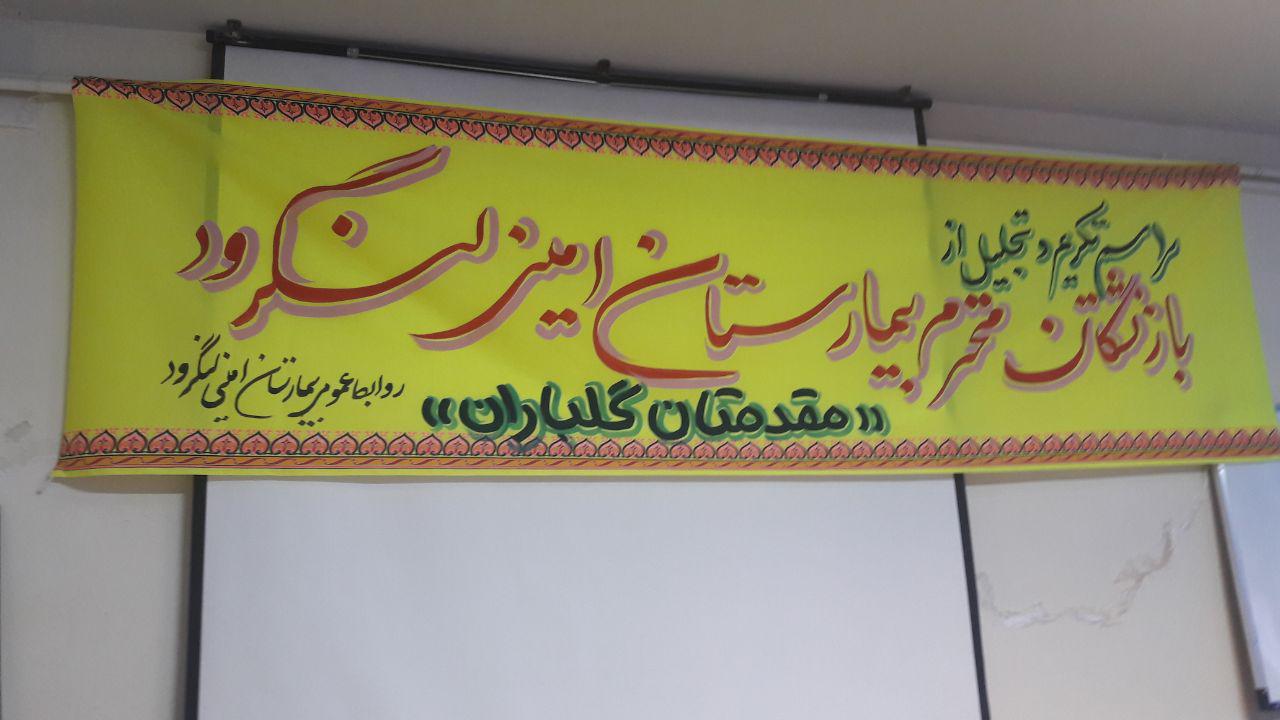 مراسم تکریم و تجلیل از
بازنشستگان محترم بیمارستان امینی لنگرود
«مقدمتان گلباران»
روابط عمومی بیمارستان امینی لنگرود